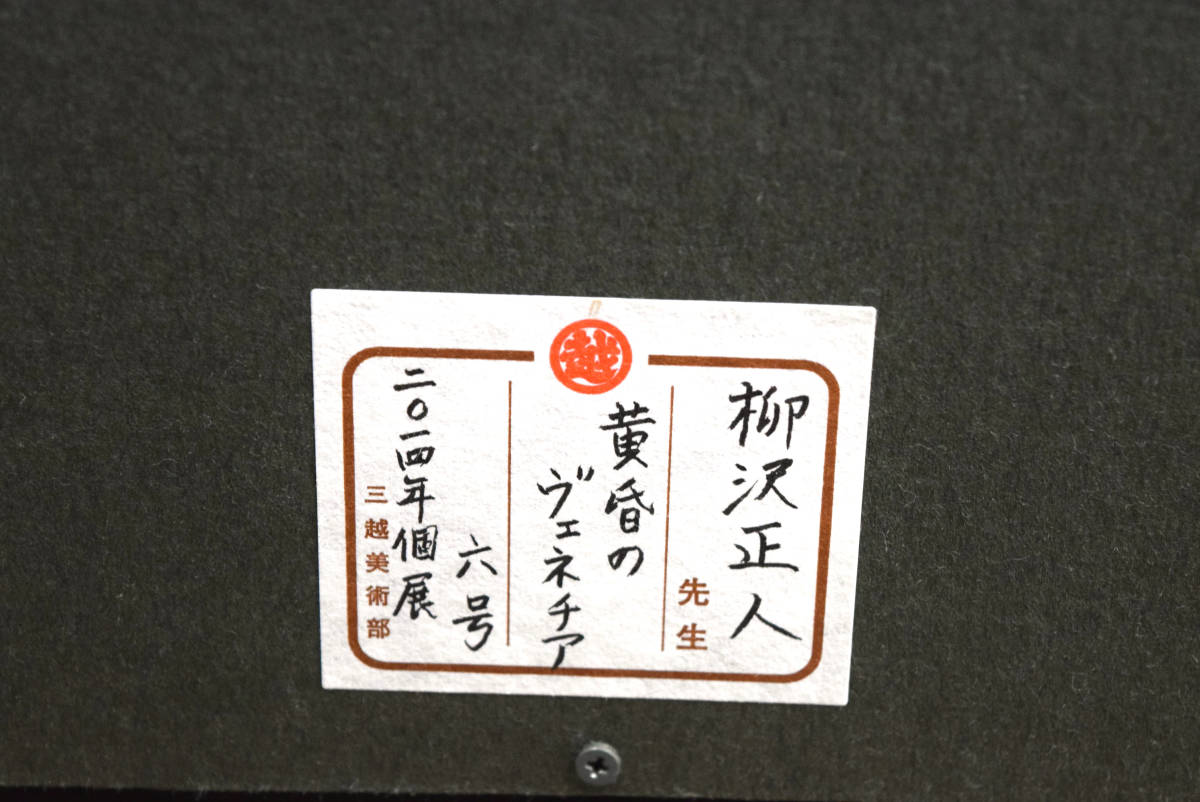 越
柳沢正人
先生
黄昏の
ヴェネチア
六号
二〇一四年個展
三越美術部